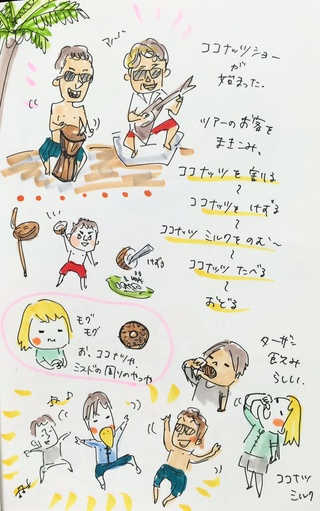 ココナッツショー
が
始まった.
ツアーのお客を
まきこみ、
ココナッツを割る
〜
ココナッツをけずる
〜
ココナッツミルクをのむ〜
〜
ココナッツたべる
〜
おどる
けずる
モグ
モグ
お、ココナツや.
ミスドの周りのやつや
ターザン
飲みらしい.
ココナツ
ミルク